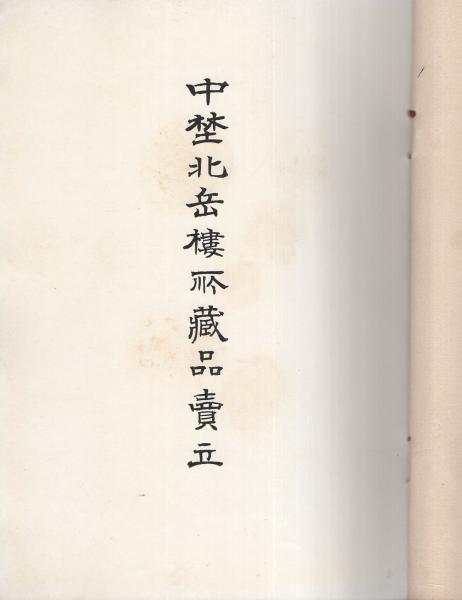 中埜北岳樓所藏品賣立